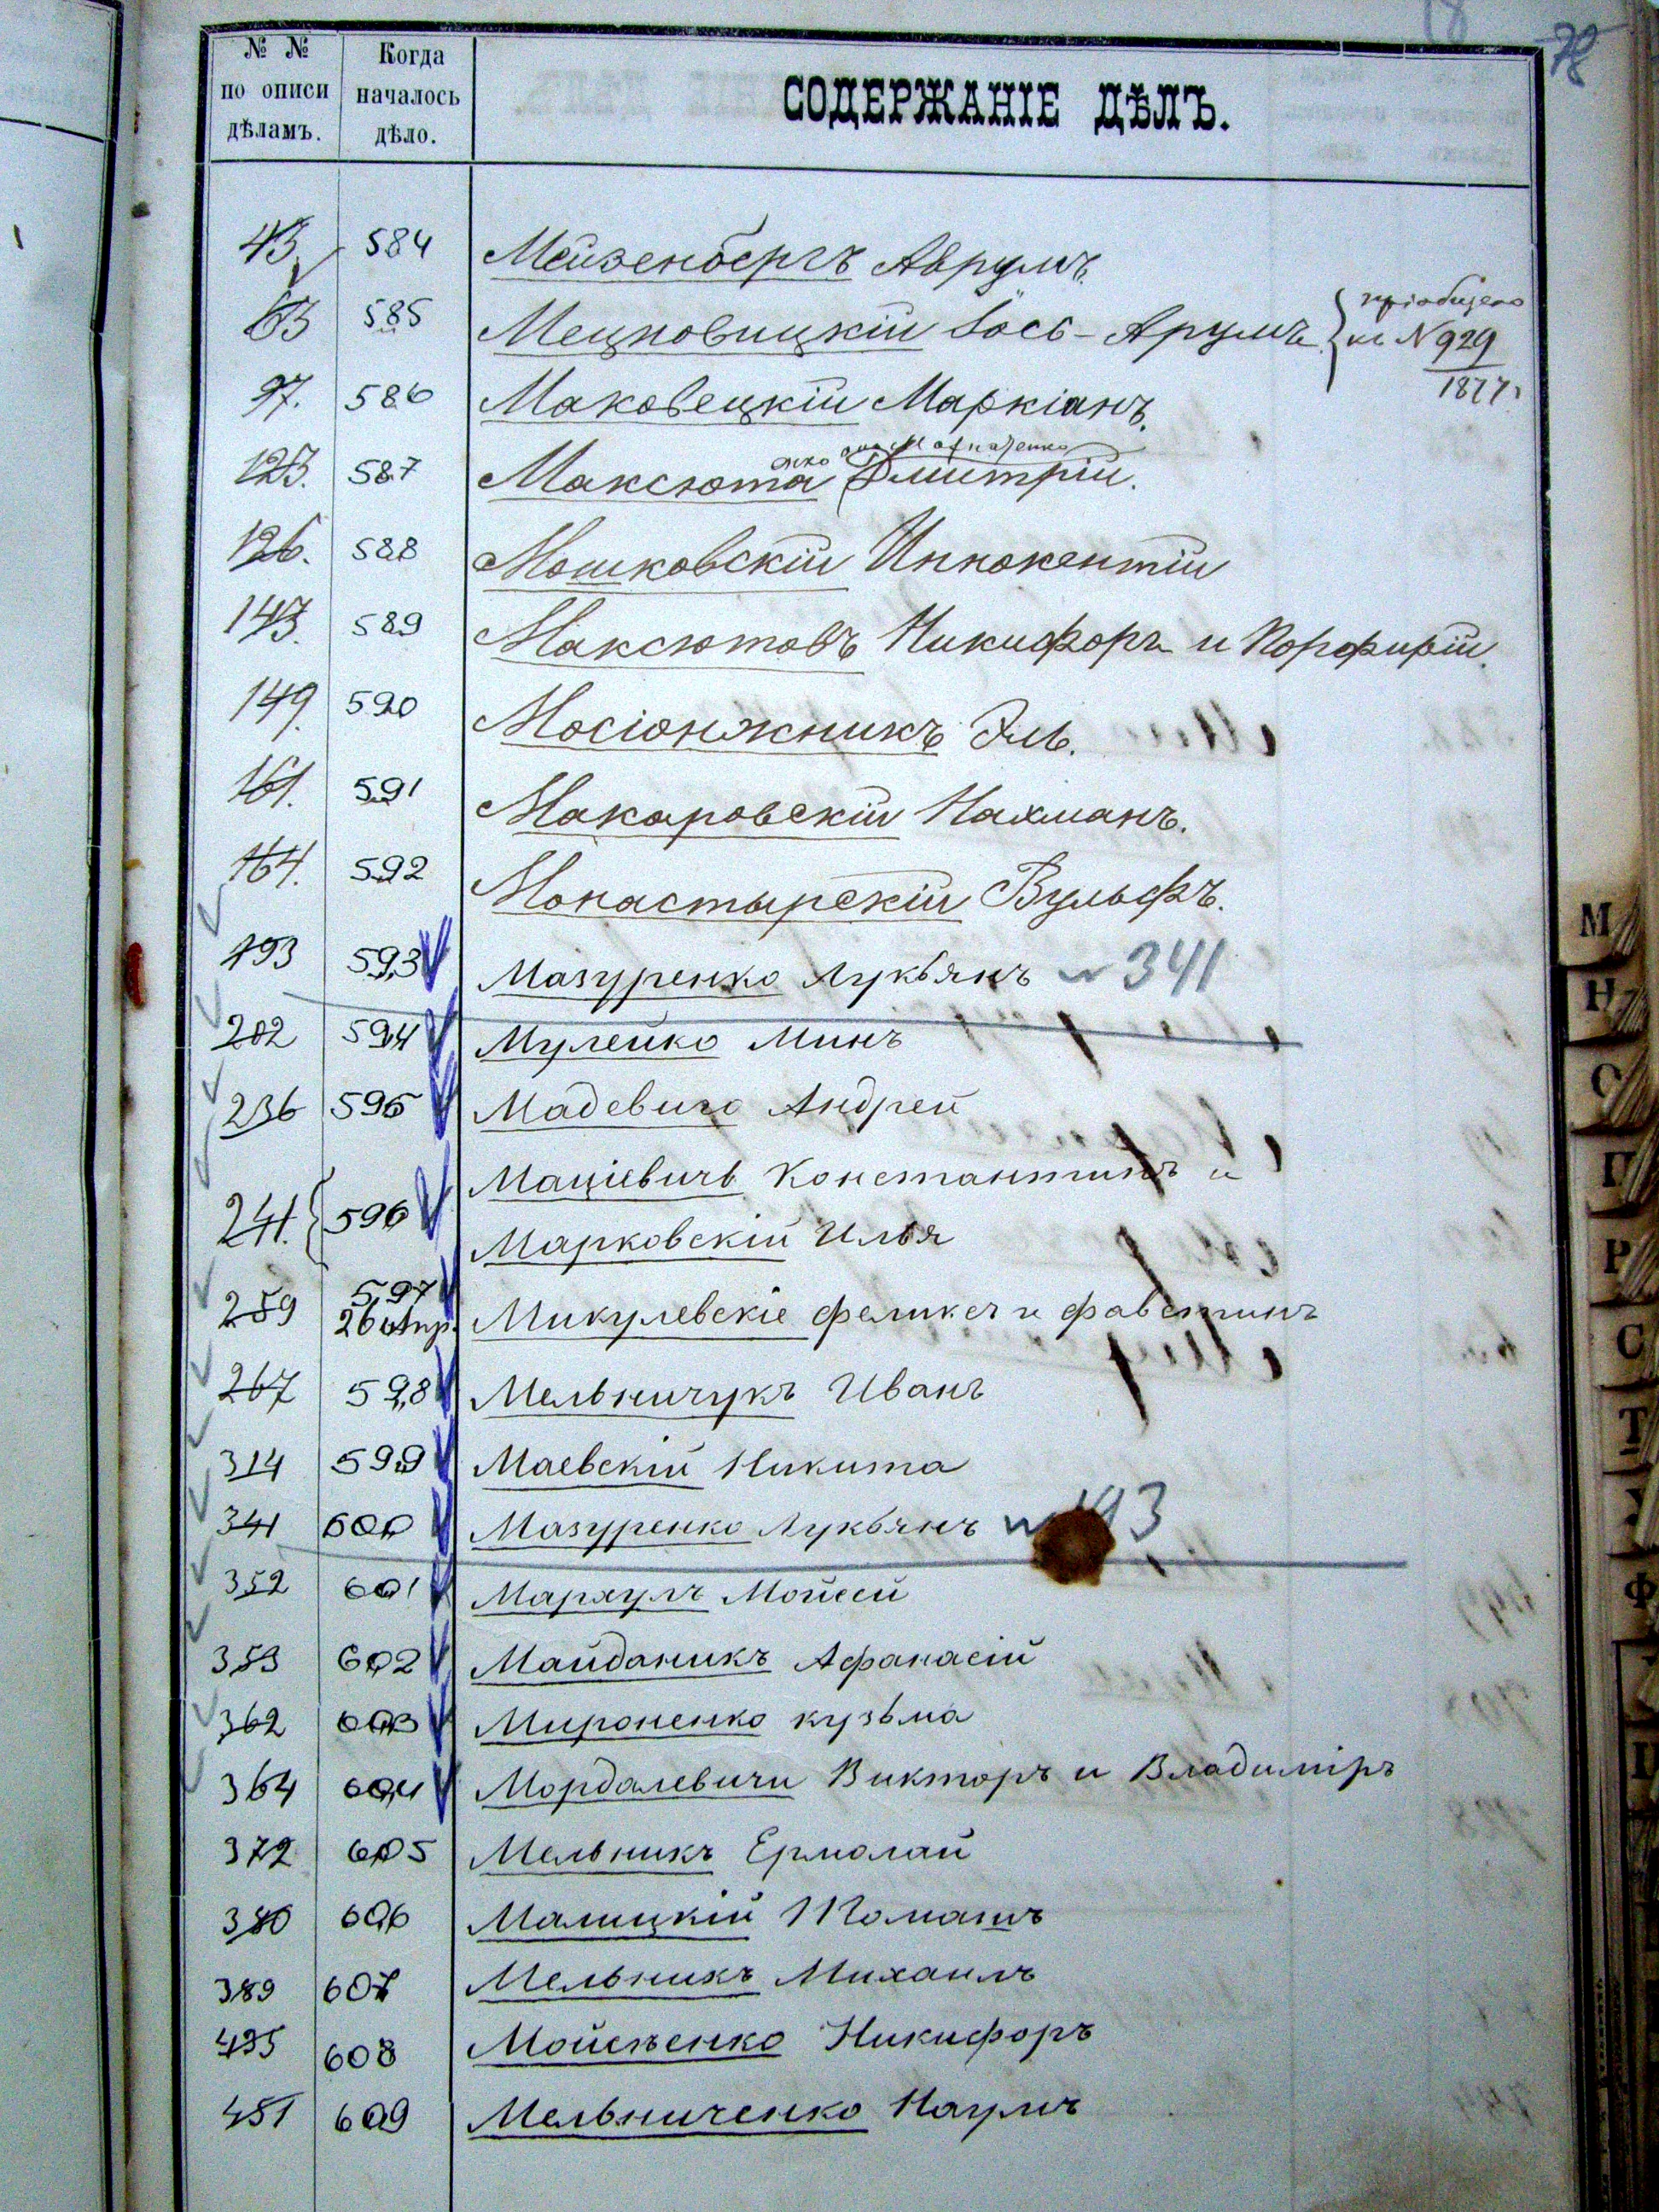 78
№ № по описи дѣламъ.
Когда началось дѣло.
СОДЕРЖАНІЕ ДѢЛЪ.
43 584 Мейзенбергъ Аврумъ.
63 585 Мецновицкій Іось-Арумъ { пріобщено
къ № 929
1877 г
97. 586 Маковецкій Маркіанъ.
онъ же
123. 587 Максюта Дмитрій.
126. 588 Мошковскій Иннокентій
143. 589 Максютовъ Никифоръ и Порфирій.
149. 590 Мосіонжникъ Эль.
161. 591 Макаровскій Нахманъ.
164. 592 Монастырскій Вульфъ.
193 593 Мазуренко Лукьянъ № 341
202 594 Мулейко Минъ
236 595 Мадевичъ Андрей
241. { 596 Маціевичъ Константинъ и
Марковскій Илья
259 597 26 Апр. Микулевскіе Феликсъ и Фавстинъ
267 598 Мельничукъ Иванъ
314 599 Маевскій Никита
341 600 Мазуренко Лукьянъ № 193
352 601 Мархулъ Мойсей
353 602 Майданикъ Афанасій
362 603 Мироненко Кузьма
364 604 Мордалевичи Викторъ и Владиміръ
372 605 Мельникъ Ермолай
380 606 Малицкій Томашъ
389 607 Мельникъ Михаилъ
435 608 Мойсѣенко Никифоръ
451 609 Мельниченко Наумъ
М
Н
О
П
Р
С
Т
У
Ф